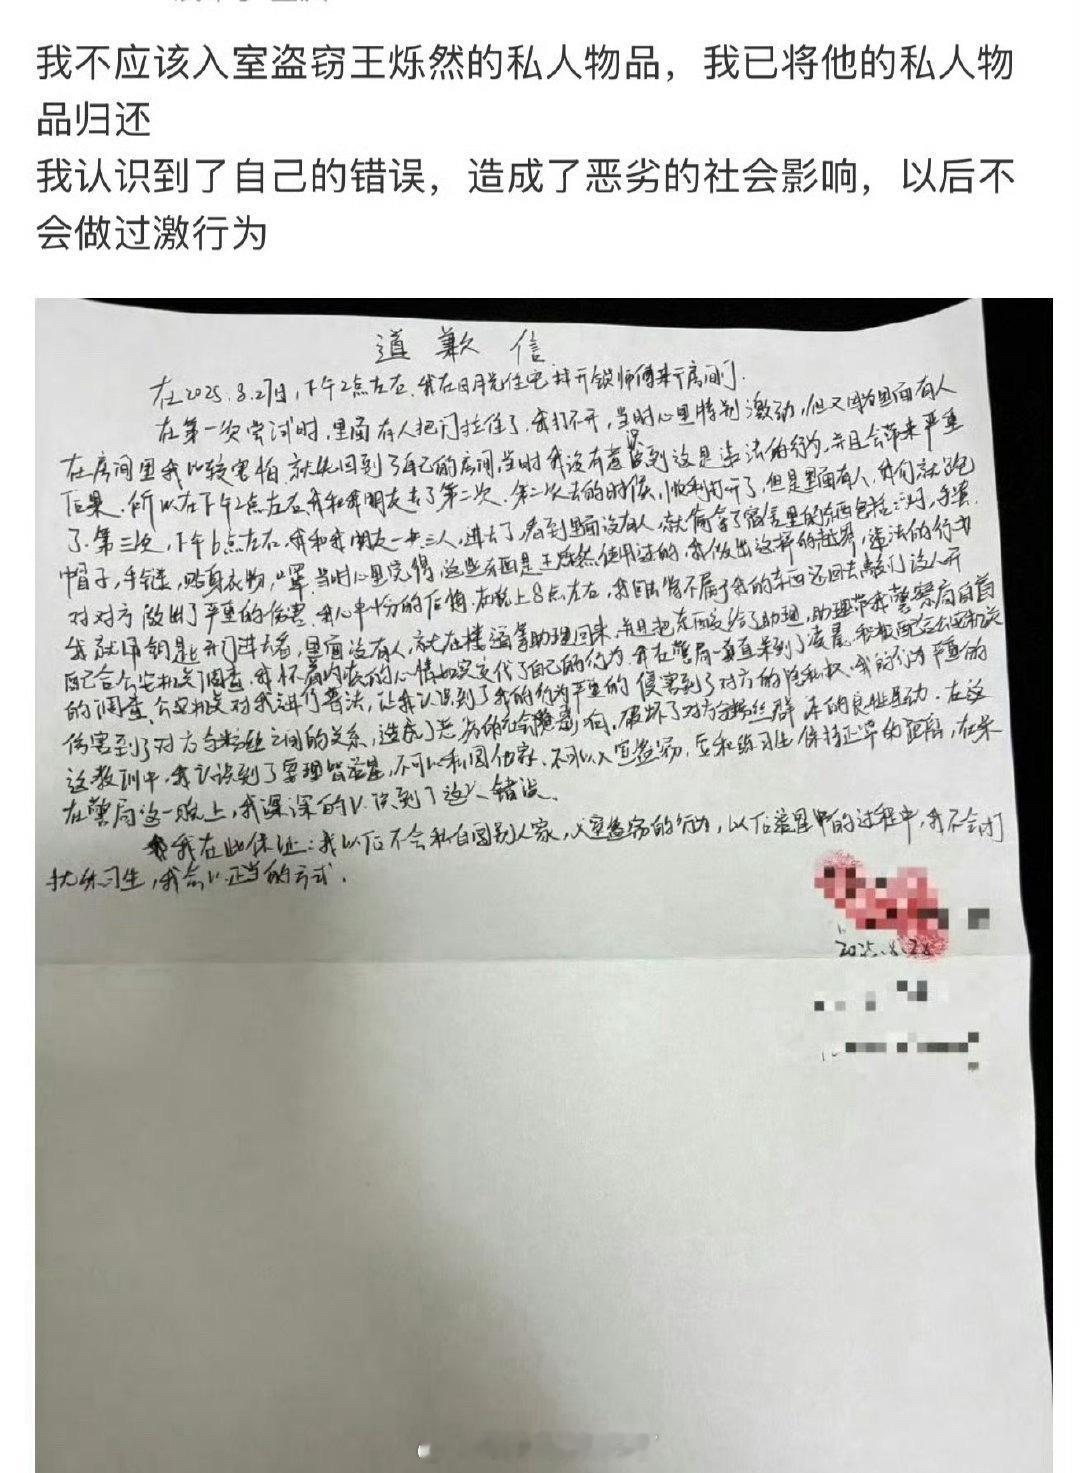 我不应该入室盗窃王烁然的私人物品，我已将他的私人物
品归还
我认识到了自己的错误，造成了恶劣的社会影响，以后不
会做过激行为
道歉信
在2025.8.27日，下午2点左右，我在日月光住宅 找开锁师傅来开房间门.
在第一次尝试时，里面有人把门拉住了，我打不开，当时心里特别激动，但又因为里面有人
在房间里我比较害怕，就先回到了自己的房间，当时我没有意识到这是违法的行为，并且会带来严重
后果，所以在下午2点左右，我和我朋友去了第二次，第二次去的时候，顺利打开了，但是里面有人，我们就跑
了.第三次，下午6点左右，我和我朋友一共三人，进去了，看到里面没有人，就偷拿了宿舍里的东西包括
帽子，手链，贴身衣物，口罩，当时心里觉得，这些东西是王烁然使用过的，我做出这样的越界，违法的行为
对对方做出了严重的伤害，我心中十份的后悔，在晚上8点左右，我回去将不属于我的东西还回去
我就用钥匙开门进去看，里面没有人，就在楼道等助理回来，并且把东西交给了助理，助理带我警察局自首
配合公安机关调查，我怀着内疚的心情如实交代了自己的行为，我在警局一直呆到了凌晨，积极配合公安机关
的调查，公安机关对我进行普法，让我认识到了我的行为严重的 侵害到了对方的隐私权，我的行为严重的
伤害到了对方与粉丝之间的关系，造成了恶劣的社会影响，破坏了对方与粉丝群体的良性互动，在这
这教训中，我认识到了要理智追星，不可以私闯他宅，不可以入室盗窃，应和练习生保持正常的距离，在来
在警局这一晚上，我深深的认识到了这个错误.
我在此保证：我以后不会私自闯别人家，入室盗窃的行为，以后追星中的过程中，我不会打
扰练习生，我会以正当的方式.
2025.8.28